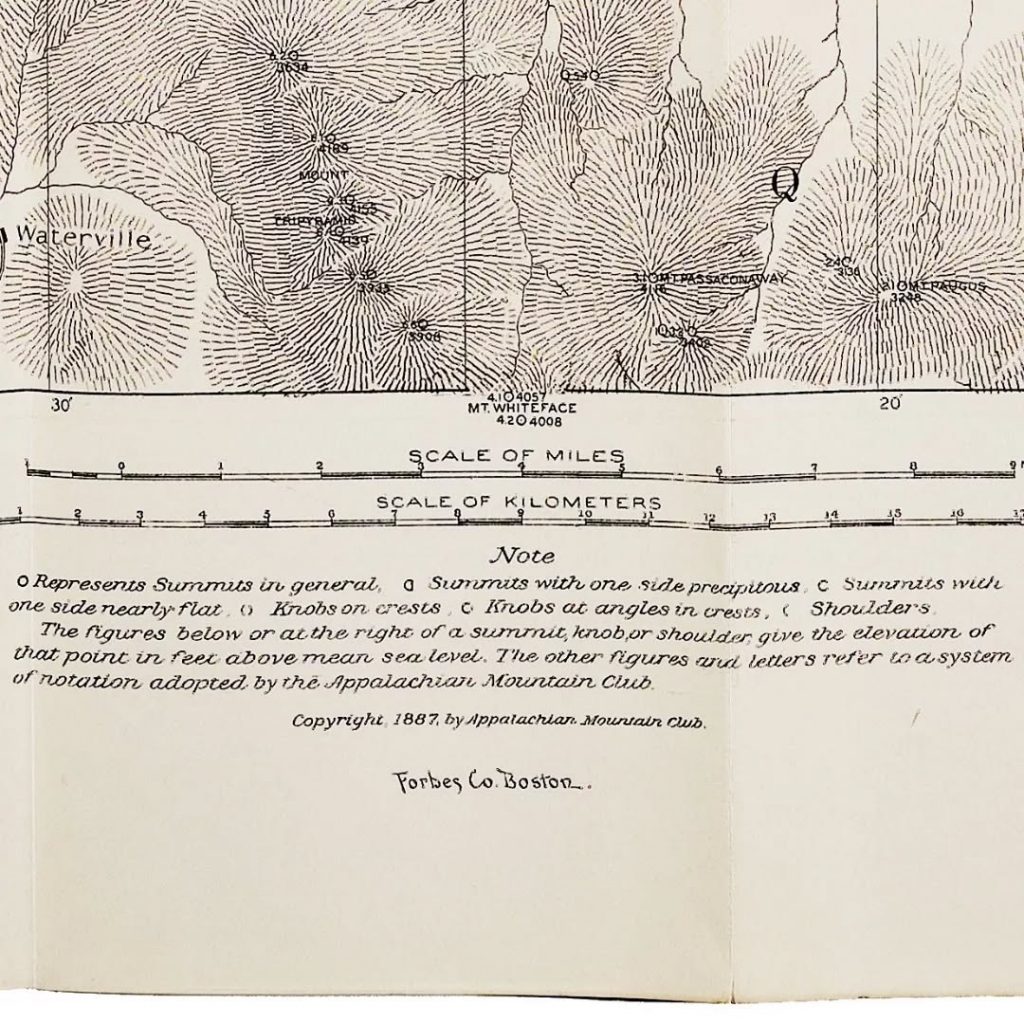 3634
4189
MOUNT
TRIPYRAMID
4139
3908
Waterville
Q
MT. PASSACONAWAY
3136
2.1 O MT. PAUGUS
3248
30′
20′
4.1 O 4057
MT. WHITEFACE
4.2 O 4008
SCALE OF MILES
1 0 1 2 3 4 5 6 7 8 9
SCALE OF KILOMETERS
1 2 3 4 5 6 7 8 9 10 11 12 13 14 15 16 17
Note
O Represents Summits in general, Summits with one side precipitous, Summits with
one side nearly flat, Knobs on crests, Knobs at angles in crests, Shoulders.
The figures below or at the right of a summit, knob, or shoulder, give the elevation of
that point in feet above mean sea level. The other figures and letters refer to a system
of notation adopted by the Appalachian Mountain Club.
Copyright, 1887, by Appalachian Mountain Club.
Forbes Co. Boston.